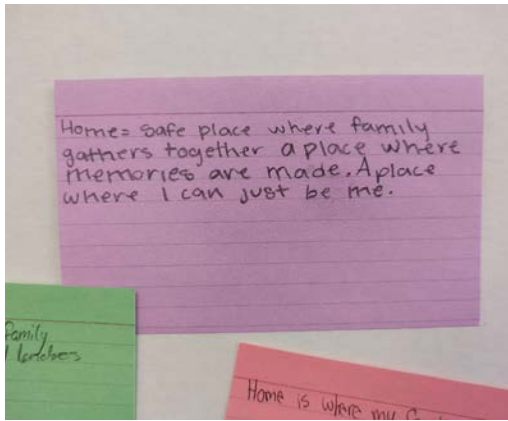 Home= safe place where family
gathers together a place where
memories are made. A place
where I can just be me.
family
Home is where my